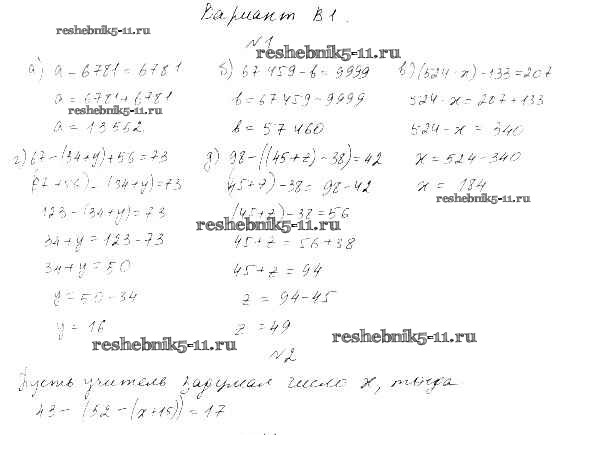 Вариант В1.
reshebnik5-11.ru
№1
reshebnik5-11.ru
а) a - 6781 = 6781
a = 6781 + 6781
reshebnik5-11.ru
a = 13562
б) 67459 - b = 9999
b = 67459 - 9999
b = 57460
в) (524 - x) - 133 = 207
524 - x = 207 + 133
524 - x = 340
x = 524 - 340
x = 184
reshebnik5-11.ru
г) 67 - (34 + y) + 56 = 73
(67 + 56) - (34 + y) = 73
123 - (34 + y) = 73
34 + y = 123 - 73
34 + y = 50
y = 50 - 34
y = 16
reshebnik5-11.ru
д) 98 - ((45 + z) - 38) = 42
(45 + z) - 38 = 98 - 42
(45 + z) - 38 = 56
reshebnik5-11.ru
45 + z = 56 + 38
45 + z = 94
z = 94 - 45
z = 49
reshebnik5-11.ru
№2
Пусть учитель задумал число x, тогда
43 - (52 - (x + 15)) = 17